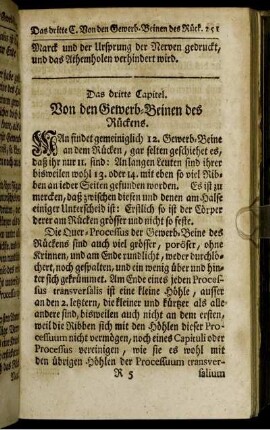 Das dritte C. Von den Gewerb-Beinen des Rück. 251
Marck und der Ursprung der Nerven gedruckt,
und das Athemholen verhindert wird.
Das dritte Capitel.
Von den Gewerb-Beinen des
Rückens.
MAn findet gemeiniglich 12. Gewerb-Beine
an dem Rücken, gar selten geschiehet es,
daß ihr nur 11. sind: An langen Leuten sind ihrer
bisweilen wohl 13. oder 14. mit eben so viel Rib-
ben an ieder Seiten gefunden worden. Es ist zu
mercken, daß zwischen diesen und denen am Halse
einiger Unterschied ist: Erstlich so ist der Cörper
derer am Rücken grösser und nicht so feste.
Die Quer-Processus der Gewerb-Beine des
Rückens sind auch viel grösser, poröser, ohne
Krinnen, und am Ende rundlicht, weder durchlö-
chert, noch gespalten, und ein wenig über und hin-
ter sich gekrümmet. Am Ende eines jeden Procef-
sus transversalis ist eine kleine Höhle, ausser
an den 2. letztern, die kleiner und kürtzer als alle
andere sind, bisweilen auch nicht an dem ersten,
weil die Ribben sich mit den Höhlen dieser Pro-
cessuum nicht vermögen, noch eines Capituli oder
Processus vereinigen, wie sie es wohl mit
den übrigen Höhlen der Processuum transver-
R 5 salium